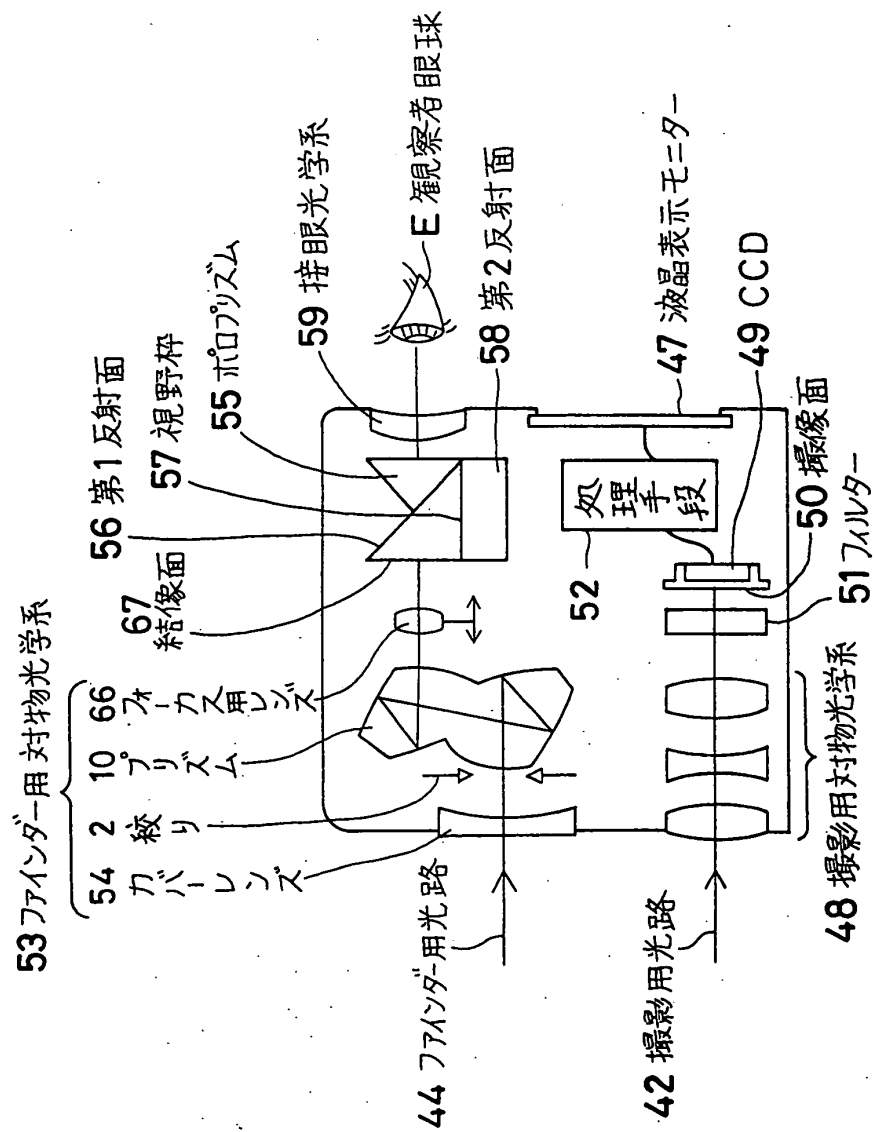 53 ファインダー用対物光学系
54 カバーレンズ
2 絞り
10 プリズム
66 フォーカス用レンズ
67 結像面
56 第1反射面
57 視野枠
55 ポロプリズム
59 接眼光学系
E 観察者眼球
58 第2反射面
47 液晶表示モニター
49 CCD
50 撮像面
51 フィルター
52
処理手段
44 ファインダー用光路
42 撮影用光路
48 撮影用対物光学系